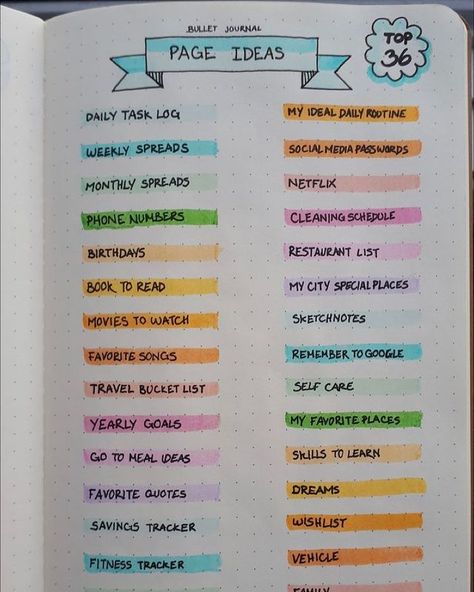 BULLET JOURNAL
PAGE IDEAS
TOP
36
DAILY TASK LOG
WEEKLY SPREADS
MONTHLY SPREADS
PHONE NUMBERS
BIRTHDAYS
BOOK TO READ
MOVIES TO WATCH
FAVORITE SONGS
TRAVEL BUCKET LIST
YEARLY GOALS
GO TO MEAL IDEAS
FAVORITE QUOTES
SAVINGS TRACKER
FITNESS TRACKER
MY IDEAL DAILY ROUTINE
SOCIAL MEDIA PASSWORDS
NETFLIX
CLEANING SCHEDULE
RESTAURANT LIST
MY CITY SPECIAL PLACES
SKETCHNOTES
REMEMBER TO GOOGLE
SELF CARE
MY FAVORITE PLACES
SKILLS TO LEARN
DREAMS
WISHLIST
VEHICLE
FAMILY